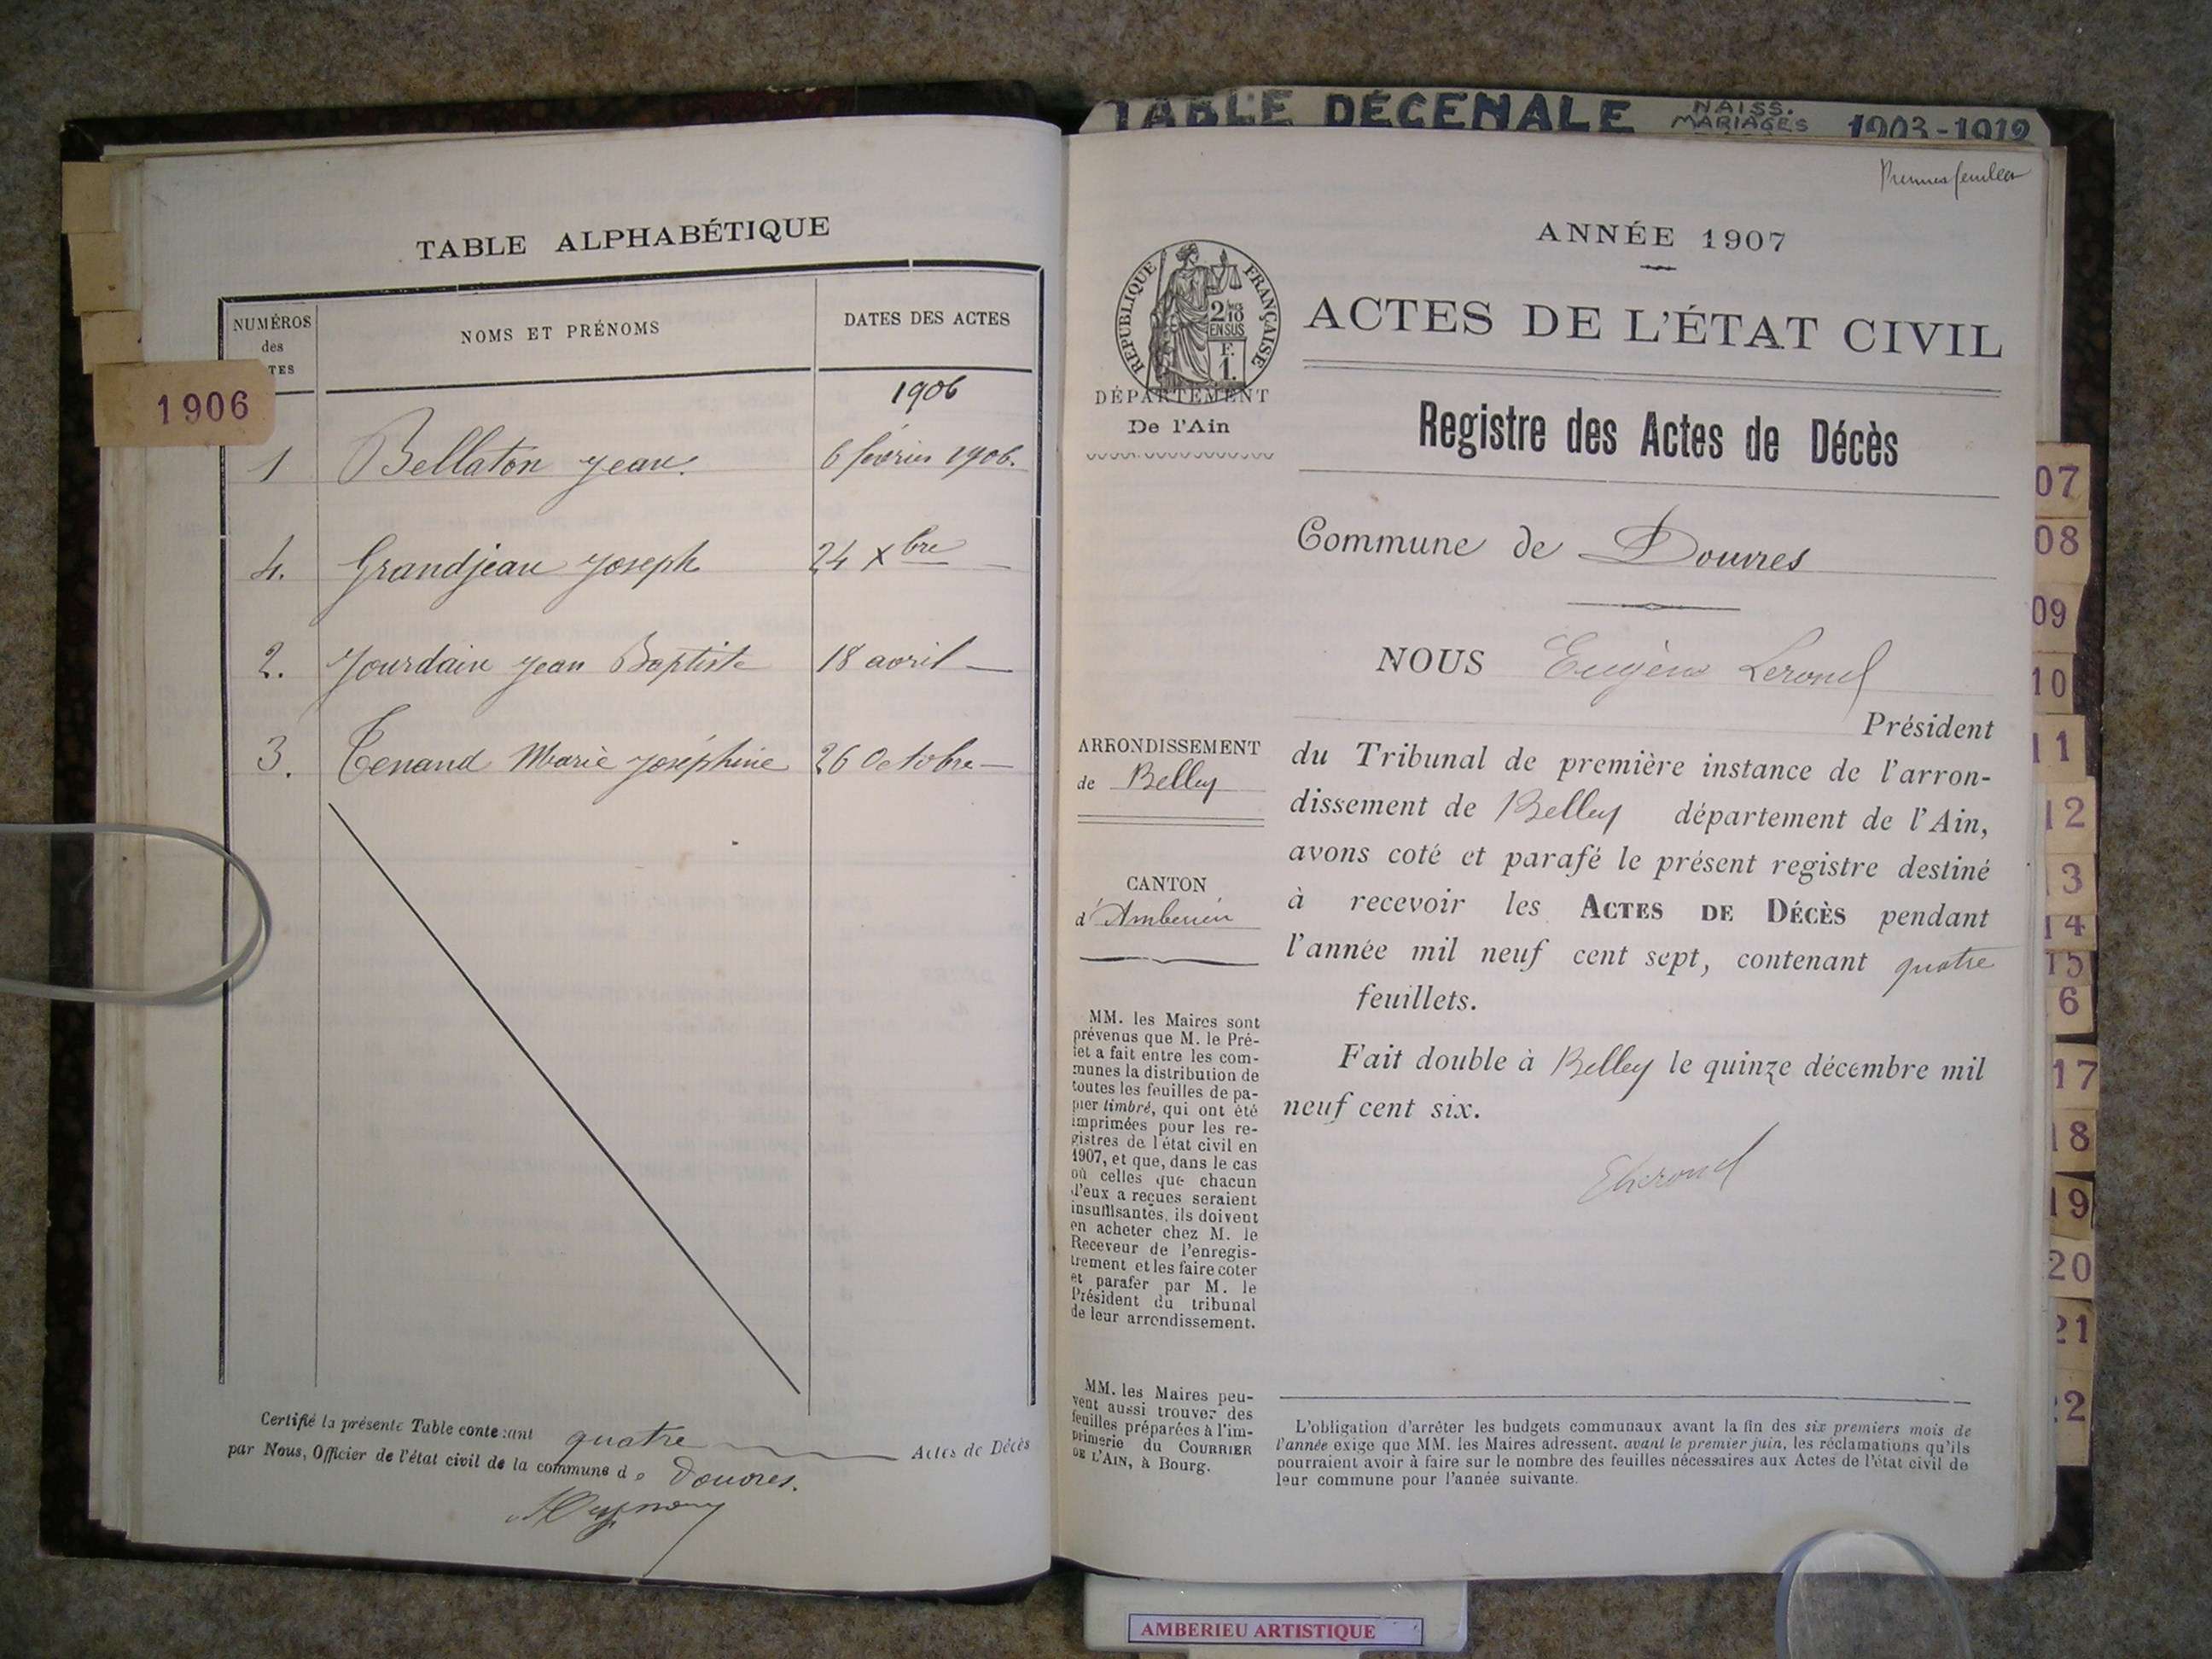 TABLE DÉCENALE NAISS. MARIAGES 1903-1912
TABLE ALPHABÉTIQUE
NUMÉROS des TES
NOMS ET PRÉNOMS
DATES DES ACTES
1906
1906
1 Bellaton Jean. 6 février 1906.
4. Grandjean Joseph 24 Xbre —
2. Jourdain Jean Baptiste 18 avril —
3. Tenand Marie Joséphine 26 Octobre —
Certifié la présente Table contenant quatre Actes de Décès
par Nous, Officier de l'état civil de la commune de Douvres.
ANNÉE 1907
RÉPUBLIQUE FRANÇAISE
2/10 EN SUS
F. 1.
ACTES DE L'ÉTAT CIVIL
DÉPARTEMENT
De l'Ain
Registre des Actes de Décès
Commune de Douvres
NOUS Eugène
Président
du Tribunal de première instance de l'arron-
dissement de Belley département de l'Ain,
avons coté et parafé le présent registre destiné
à recevoir les ACTES DE DÉCÈS pendant
l'année mil neuf cent sept, contenant quatre
feuillets.
Fait double à Belley le quinze décembre mil
neuf cent six.
ARRONDISSEMENT
de Belley
CANTON
d'Ambérieu
MM. les Maires sont
prévenus que M. le Pré-
fet a fait entre les com-
munes la distribution de
toutes les feuilles de pa-
pier timbré, qui ont été
imprimées pour les re-
gistres de l'état civil en
1907, et que, dans le cas
où celles que chacun
d'eux a reçues seraient
insuffisantes, ils doivent
en acheter chez M. le
Receveur de l'enregis-
trement et les faire coter
et parafer par M. le
Président du tribunal
de leur arrondissement.
MM. les Maires peu-
vent aussi trouver des
feuilles préparées à l'im-
primerie du COURRIER
DE L'AIN, à Bourg.
L'obligation d'arrêter les budgets communaux avant la fin des six premiers mois de
l'année exige que MM. les Maires adressent, avant le premier juin, les réclamations qu'ils
pourraient avoir à faire sur le nombre des feuilles nécessaires aux Actes de l'état civil de
leur commune pour l'année suivante.
07
08
09
10
11
12
3
14
15
6
17
18
19
20
21
2
AMBERIEU ARTISTIQUE